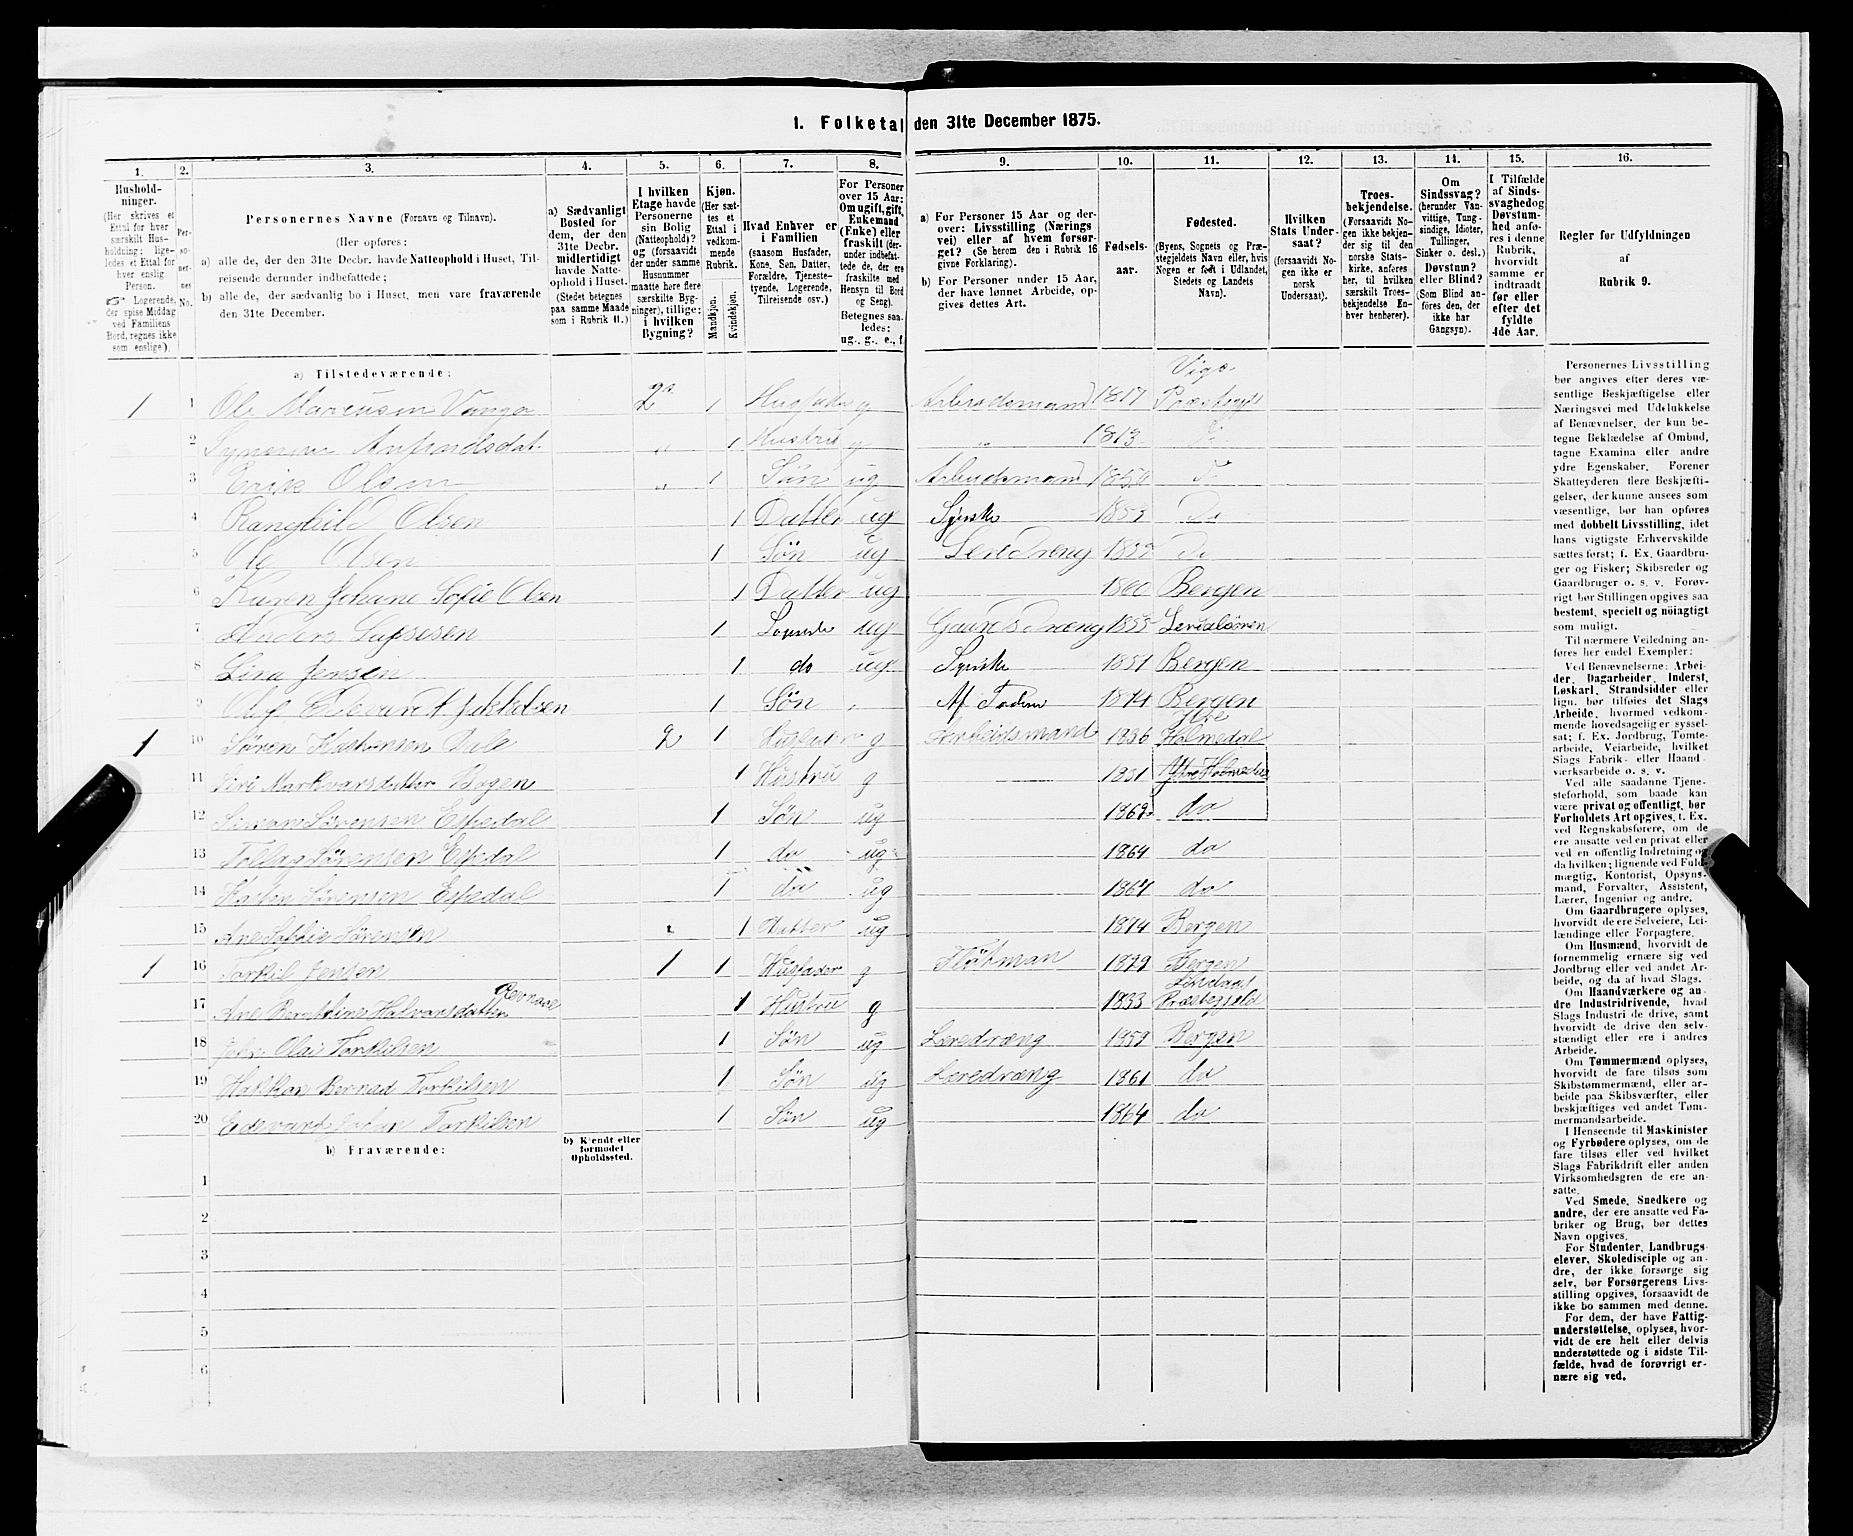 1. Folketal den 31te December 1875.
1.
Hushold-
ninger.
(Her skrives et
Ettal for hver
særskilt Hus-
holdning; lige-
ledes et Ettal for
hver enslig
Person.
☞ Logerende,
der spise Middag
ved Familiens
Bord, regnes ikke
som enslige).
2.
Per-
so-
ner-
nes
No.
3.
Personernes Navne (Fornavn og Tilnavn).
(Her opføres:
a) alle de, der den 31te Decbr. havde Natteophold i Huset, Til-
reisende derunder indbefattede;
b) alle de, der sædvanlig bo i Huset, men vare fraværende
den 31te December.
4.
a) Sædvanligt
Bosted for
dem, der den
31te Decbr.
midlertidigt
havde Natte-
ophold i Huset.
(Stedet betegnes
paa samme Maade
som i Rubrik 11.)
5.
I hvilken
Etage havde
Personerne
sin Bolig
(Natteophold)?
og (forsaavidt
der under samme
Husnummer
maatte høre flere
særskilte Byg-
ninger), tillige:
i hvilken
Bygning?
6.
Kjøn.
(Her sæt-
tes et
Ettal i
vedkom-
mende
Rubrik.
Mandkjøn.
Kvindekjøn.
7.
Hvad Enhver er
i Familien
(saasom Husfader,
Kone, Søn, Datter,
Forældre, Tjeneste-
tyende, Logerende,
Tilreisende osv.)
8.
For Personer
over 15 Aar:
Om ugift, gift,
Enkemand
(Enke) eller
fraskilt (der-
under indbefat-
tede de, der ere
fraskilte med
Hensyn til Bord
og Seng).
Betegnes saa-
ledes:
ug., g., e., f.
9.
a) For Personer 15 Aar og der-
over: Livsstilling (Nærings-
vei) eller af hvem forsør-
get? (Se herom den i Rubrik 16
givne Forklaring).
b) For Personer under 15 Aar,
der have lønnet Arbeide, op-
gives dettes Art.
10.
Fødsels-
aar.
11.
Fødested.
(Byens, Sognets og Præ-
stegjeldets Navn eller, hvis
Nogen er født i Udlandet,
Stedets og Landets
Navn).
12.
Hvilken
Stats Under-
saat?
(forsaavidt No-
gen ikke er
norsk
Undersaat).
13.
Troes-
bekjendelse.
(Forsaavidt No-
gen ikke bekjen-
der sig til den
norske Stats-
kirke, anføres
her, til hvilken
særskilt Troes-
bekjendelse En-
hver henhører).
14.
Om
Sindssvag?
(herunder Van-
vittige, Tung-
sindige, Idioter,
Tullinger,
Sinker o. desl.)
Døvstum?
eller Blind?
(Som Blind an-
føres den, der
ikke har
Gangsyn).
15.
I Tilfælde
af Sinds-
svaghed og
Døvstum-
hed anfø-
res i denne
Rubrik,
hvorvidt
samme er
indtraadt
før eller
efter det
fyldte
4de Aar.
16.
Regler for Udfyldningen
af
Rubrik 9.
a) Tilstedeværende:
1 1 Ole Marcusen Vanga 2 1 Husfader g Arbeidsmand 1817 Præstegjd
2 1 Hustru g „ 1813 Do
3 Erik Olsen „ 1 Søn ug Arbeidsmand 1850 Do
4 Ranghild Olsen 1 Datter ug Syerske 1853 Do
5 Ole Olsen 1 Søn ug Leredreng 1855 Do
6 Karen Johane Sofie Olsen 1 Datter ug 1860 Bergen
7 Anders 1 ug Gaardsdræng 1855 Lerdalsøren
8 Lina Jensen 1 do ug Syerske 1851 Bergen
9 Olaf Edevardt Jakkobsen 1 Søn Af Faderen 1874 Bergen
1 10 Søren Dale 2 1 Husfader g Arbeidsmand 1836 Holmedal
11 Siri Markvarsdatter Bogen 1 Hustru g 1831 Yttre Holmedal
12 Simon Sørensen Espedal 1 Søn ug 1862 do
13 Sørensen Espedal 1 do ug 1864 do
14 Karsten Sørensen Espedal 1 do ug 1867 do
15 Ane Sørensen 1 datter ug 1874 Bergen
1 16 Torkil Jensen 1 1 Husfader g Flötman 1829 Bergen
17 Ane Halvarsdatter 1 Hustru g 1833 Præstegjeld
18 John Olai Torkilsen 1 Søn ug Leredræng 1859 Bergen
19 Haakkon Bernad Torkilsen 1 Søn ug Læredræng 1861 do
20 Edevart Johan Torkilsen 1 Søn ug 1864 do
b) Fraværende:
b) Kjendt eller
formodet
Opholdssted.
1
2
3
4
5
6
Personernes Livsstilling
bør angives efter deres væ-
sentlige Beskjæftigelse eller
Næringsvei med Udelukkelse
af Benævnelser, der kun be-
tegne Beklædelse af Ombud,
tagne Examina eller andre
ydre Egenskaber. Forener
Skatteyderen flere Beskjæfti-
gelser, der kunne ansees som
væsentlige, bør han opføres
med dobbelt Livsstilling, idet
hans vigtigste Erhvervskilde
sættes først; f. Ex. Gaardbru-
ger og Fisker; Skibsreder og
Gaardbruger o. s. v. Forøv-
rigt bør Stillingen opgives saa
bestemt, specielt og nøiagtigt
som muligt.
Til nærmere Veiledning an-
føres her endel Exempler:
Ved Benævnelserne: Arbei-
der, Dagarbeider, Inderst,
Løskarl, Strandsidder eller
lign. bør tilføies det Slags
Arbeide, hvormed vedkom-
mende hovedsagelig er syssel-
sat; f. Ex. Jordbrug, Tomte-
arbeide, Veiarbeide, hvilket
Slags Fabrik- eller Haand-
værksarbeide o. s. v.
Ved alle saadanne Tjene-
steforhold, som baade kan
være privat og offentligt, bør
Forholdets Art opgives, t. Ex.
ved Regnskabsførere, om de
ere ansatte ved en privat eller
ved en offentlig Indretning og
da hvilken; lignende ved Fuld-
mægtig, Kontorist, Opsyns-
mand, Forvalter, Assistent,
Lærer, Ingeniør og andre.
Om Gaardbrugere oplyses,
hvorvidt de ere Selveiere, Lei-
lændinge eller Forpagtere.
Om Husmænd, hvorvidt de
fornemmelig ernære sig ved
Jordbrug eller ved andet Ar-
beide, og da af hvad Slags.
Om Haandværkere og an-
dre Industridrivende, hvad
Slags Industri de drive, samt
hvorvidt de drive den selv-
stændigt eller ere i andres
Arbeide.
Om Tømmermænd oplyses,
hvorvidt de fare tilsøs som
Skibstømmermænd, eller ar-
beide paa Skibsværfter, eller
beskjæftiges ved andet Tøm-
mermandsarbeide.
I Henseende til Maskinister
og Fyrbødere oplyses, om de
fare tilsøs eller ved hvilket
Slags Fabrikdrift eller anden
Virksomhedsgren de ere an-
satte.
Ved Smede, Snedkere og
andre, der ere ansatte ved Fa-
briker og Brug, bør dettes
Navn opgives.
For Studenter, Landbrugs-
elever, Skoledisciple og an-
dre, der ikke forsørge sig
selv, bør Forsørgerens Livs-
stilling opgives, forsaavidt de
ikke bo sammen med denne.
For dem, der have Fattig-
understøttelse, oplyses, hvor-
vidt de ere helt eller delvis
understøttede og i sidste Til-
fælde, hvad de forøvrigt er-
nære sig ved.